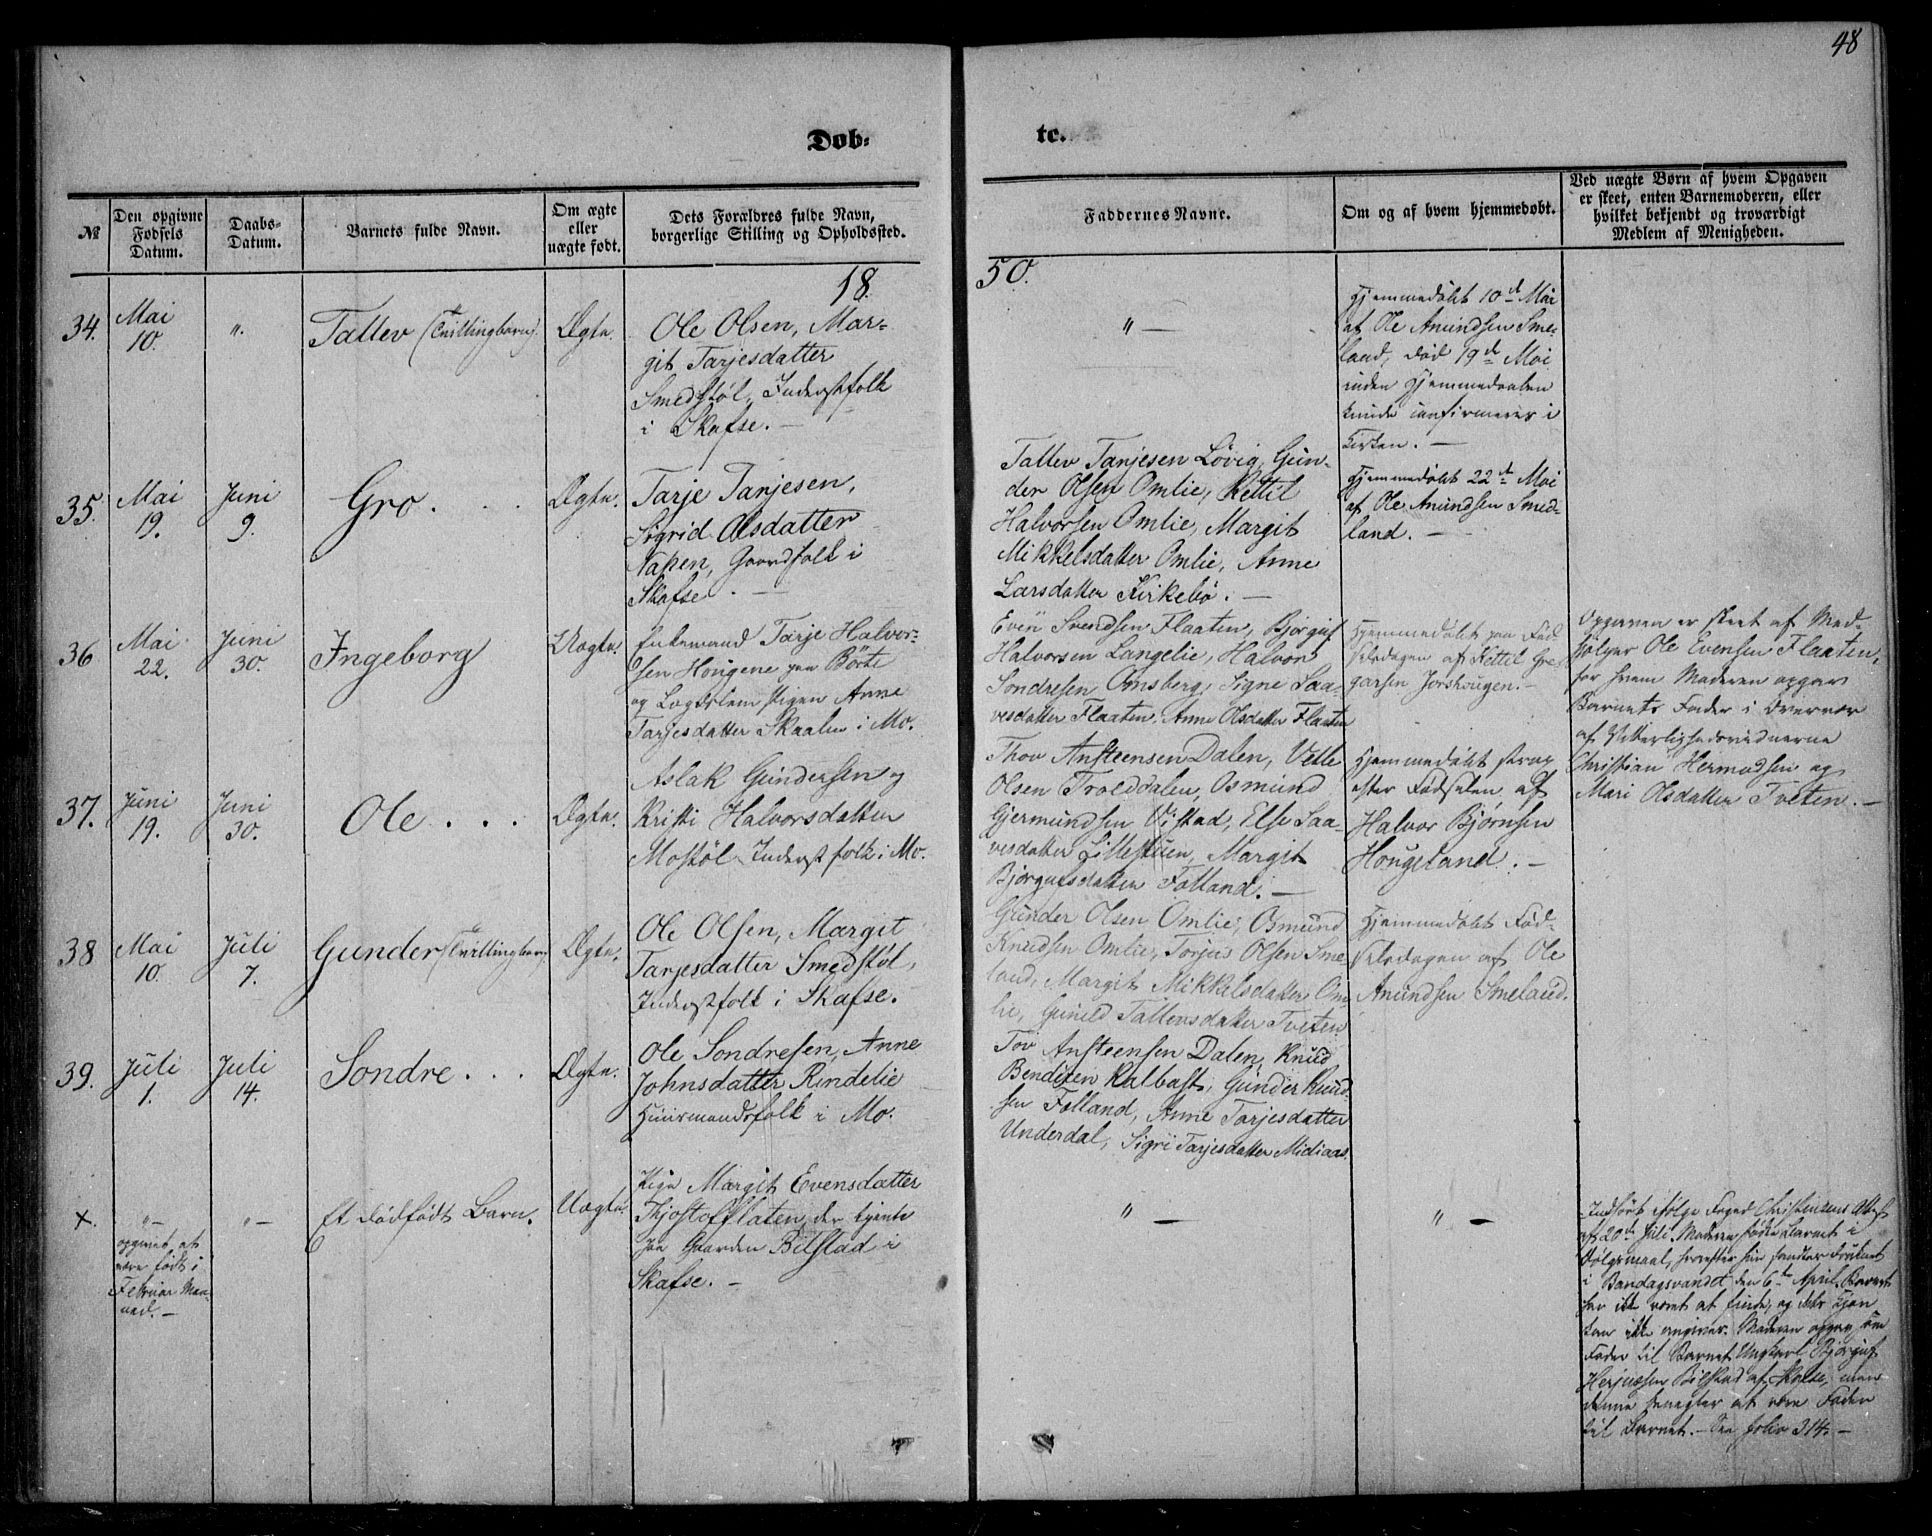 48
Døb-
te.
№
Den opgivne
Fødsels
Datum.
Daabs-
Datum.
Barnets fulde Navn.
Om ægte
eller
uægte født.
Dets Forældres fulde Navn,
borgerlige Stilling og Opholdssted.
Faddernes Navne.
Om og af hvem hjemmedøbt.
Ved uægte Børn af hvem Opgaven
er skeet, enten Barnemoderen, eller
hvilket bekjendt og troværdigt
Medlem af Menigheden.
18
50.
34.
Mai
10.
"
Tallev (Tvillingbarn).
Ægte.
Ole Olsen, Mar-
git Tarjesdatter
Smedstøl, Inderstfolk
i Skafse. —
" —
Hjemmedøbt 10de Mai
af Ole Amundsen Sme-
land, død 19de Mai
inden Hjemmedaaben
kunde confirmeres i
Kirken. —
35.
Mai
19.
Juni
9.
Gro . . .
Ægte.
Tarje Tarjesen,
Sigrid Olsdatter
Napen, Gaardfolk i
Skafse. —
Tallev Tarjesen Løvig, Gun-
der Olsen Omlie, Kettil
Halvorsen Omlie, Margit
Mikkelsdatter Omlie, Anne
Larsdatter Kirkebø. —
Hjemmedøbt 22de Mai
af Ole Amundsen Smed-
land. —
36
Mai
22.
Juni
30.
Ingeborg
Uægte.
Enkemand Tarje Halvor-
sen Hougene paa Børte
og Lægdslem pigen Anne
Tarjesdatter Skaalen i Mo.
Even Svendsen Flaaten, Bjørguf
Halvorsen Langelie, Halvor
Sondresen Omsberg, Signe Saa-
vesdatter Flaaten, Anne Olsdatter Flaaten
Hjemmedøbt paa Fød-
selsdagen af Kettil Gre-
garsen Jorshougen. —
Opgaven er skeet af Med-
hjelper Ole Evensen Flaaten,
for hvem Moderen opgav
Barnets Fader i Overvær
af Vitterlighedsvidnerne
Christian Hermodsen og
Mari Olsdatter Tveten. —
37.
Juni
19.
Juni
30.
Ole . . .
Ægte.
Aslak Gundersen og
Kristi Halvorsdatter
Mostøl Inderstfolk i Mo.
Thov Ansteensen Dalen, Vetle
Olsen Trolddalen, Osmund
Gjermundsen Vistad, Else Saa-
vesdatter Lillestuen, Margit
Bjørgufsdatter Folland. —
Hjemmedøbt strax
efter Fødselen af
Halvor Bjørnsen
Hougeland. —
38
Mai
10.
Juli
7.
Gunder (Tvillingbarn)
Ægte.
Ole Olsen, Margit
Tarjesdatter Smedstøl,
Inderstfolk i Skafse.
Gunder Olsen Omlie, Osmund
Knudsen Omlie, Torjus Olsen Sme-
land, Margit Mikkelsdatter Om-
lie, Gunild Tallevsdatter Tveten
Hjemmedøbt Fød-
selsdagen af Ole
Amundsen Smeland.
39.
Juli
1.
Juli
14.
Sondre . . .
Ægte.
Ole Sondresen, Anne
Johnsdatter Rindelie
Huusmandsfolk i Mo.
Tov Ansteensen Dalen, Knud
Bendixen Kalbast, Gunder Knud-
sen Folland, Anne Tarjesdatter
Underdal, Sigri Tarjesdatter Midiaas.
×.
" —
opgivet at
være født i
Februar Maa-
ned. —
" —
Et dødfødt Barn.
Uægte
Pige Margit Evensdatter
Thjostofflaten, der tjente
paa Gaarden Bilstad i
Skafse. —
" —
" —
Indført ifølge Foged Christensens
af 20de Juli. Moderen fødte Barnet i
Dølgsmaal, hvorefter hun sænkede Fosteret
i Bandagsvandet den 6te April. Barnet
har ikke været at finde, og dets Kjøn
kan ikke angives. Moderen opgav som
Fader til Barnet Ungkarl Bjørguf
Herjussen Bilstad af Skafse, men
denne benegter at være Fader
til Barnet. — See folio 314. —